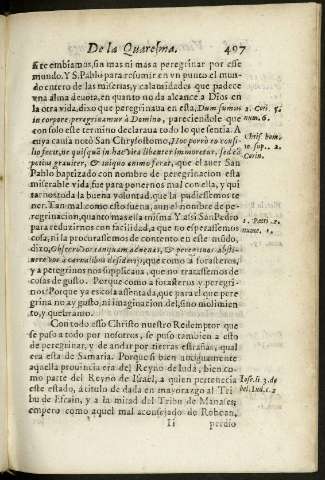 De la Quaresma. 497
te embiamos, sin mas ni mas a peregrinar por esse
mundo. Y S. Pablo para resumir en vn punto el mun-
do entero de las miserias, y calamidades que padece
vna alma deuota, en quanto no da alcance a Dios en
la otra vida, dixo que peregrinaua en esta, Dum sumus
in corpore peregrinamur à Domino, pareciendole que
con solo este termino declaraua todo lo que sentia. A
cuya causa notò San Chrysostomo,
San
Pablo baptizado con nombre de peregrinacion esta
miserable vida, fue para ponernos mal con ella, y qui
tarnos toda la buena voluntad, que la pudiessemos te-
ner. Tan mal como esto suena, aun el nombre de pe-
regrinacion, quanto mas ella misma. Y assi San Pedro
para reduzirnos con facilidad, a que no esperassemos
cosa, ni la procurassemos de contento en este mūdo,
dixo, Obsecro vos tanquam aduenas, & peregrinos absti-
nere vos à carnalibus desiderijs, que como a forasteros,
y a peregrinos nos supplicaua, que no tratassemos de
cosas de gusto. Porque como a forasteros y peregri-
nos. Porque ya es cosa assentada, que para el que pere
grina no ay gusto, ni imaginacion del, sino molimien
to, y quebranto.
Con todo esso Christo nuestro Redemptor que
se puso a todo por nosotros, se puso tambien a esto
de peregrinar, y de andar por tierras estrañas, qual
era esta de Samaria. Porque si bien antiguamente
aquella prouincia era del Reyno de Iuda, bien co-
mo parte del Reyno de Israel, a quien pertenecia
este estado, à titulo de dada en mayorazgo al Tri
bu de Efrain, y a la mitad del Tribu de Manasses;
empero como aquel mal aconsejado de Roboan,
Ii perdio
2. Cor. 5.
num. 6.
Chris. hom.
Corin.
1. Petri. 2.
Iose. li. 3. de
bel. Iud. c. 2